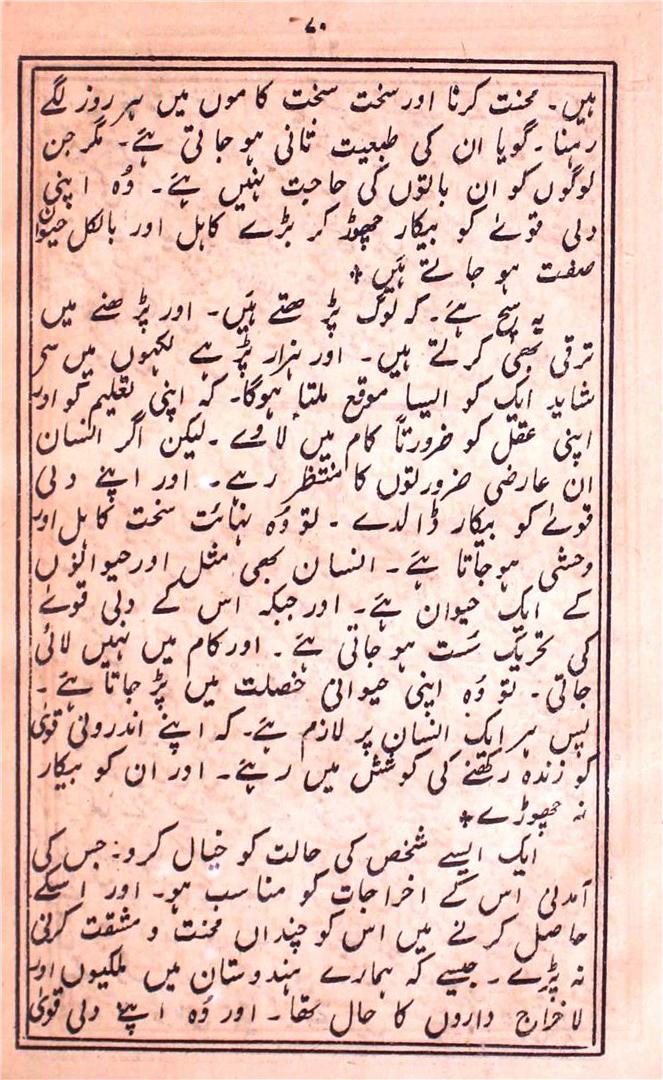 ۷۰
ہیں۔ محنت کرنا اور سخت سخت کاموں میں ہر روز لگے
رہنا۔ گویا ان کی طبعیت ثانی ہو جاتی ہے۔ مگر جن
لوگوں کو ان باتوں کی حاجت نہیں ہے۔ وُہ اپنی
دلی قوےٰ کو بیکار چھوڑ کر بڑے کاہل اور بالکل حیوان
صفت ہو جاتے ہَیں ٭
یہ سچ ہے۔ کہ لوگ پڑھتے ہَیں۔ اور پڑھنے میں
ترقی بھی کرتے ہیں۔ اور ہزار پڑہے لکہوں میں سی
شاید ایک کو ایسا موقع ملتا ہوگا۔ کہ اپنی تعلیم کو اور
اپنی عقل کو ضرورتاً کام میں لاوے۔ لیکن اگر انسان
ان عارضی ضرورتوں کا منتظر رہے۔ اور اپنے دلی
قوےٰ کو بیکار ڈالدے۔ تو وُہ نہائت سخت کاہل اور
وحشی ہو جاتا ہے۔ انسان بھی مثل اور حیوانوں
کے ایک حیوان ہے۔ اور جبکہ اس کے دلی قوےٰ
کی تحریک سُست ہو جاتی ہے۔ اور کام میں نہیں لائی
جاتی۔ تو وُہ اپنی حیوانی خصلت میں پڑ جاتا ہے۔
پس ہر ایک انسان پر لازم ہے۔ کہ اپنے اندرونی قویٰ
کو زندہ رکھنے کی کوشش میں رہے۔ اور ان کو بیکار
نہ چھوڑے ٭
ایک ایسے شخص کی حالت کو خیال کرو۔ جس کی
آمدنی اس کے اخراجات کو مناسب ہو۔ اور اسکے
حاصل کرنے میں اس کو چنداں محنت و مشقت کرنی
نہ پڑے۔ جیسے کہ ہمارے ہندوستان میں ملکیوں اور
لاخراج داروں کا حال تھا۔ اور وُہ اپنے دلی قویٰ